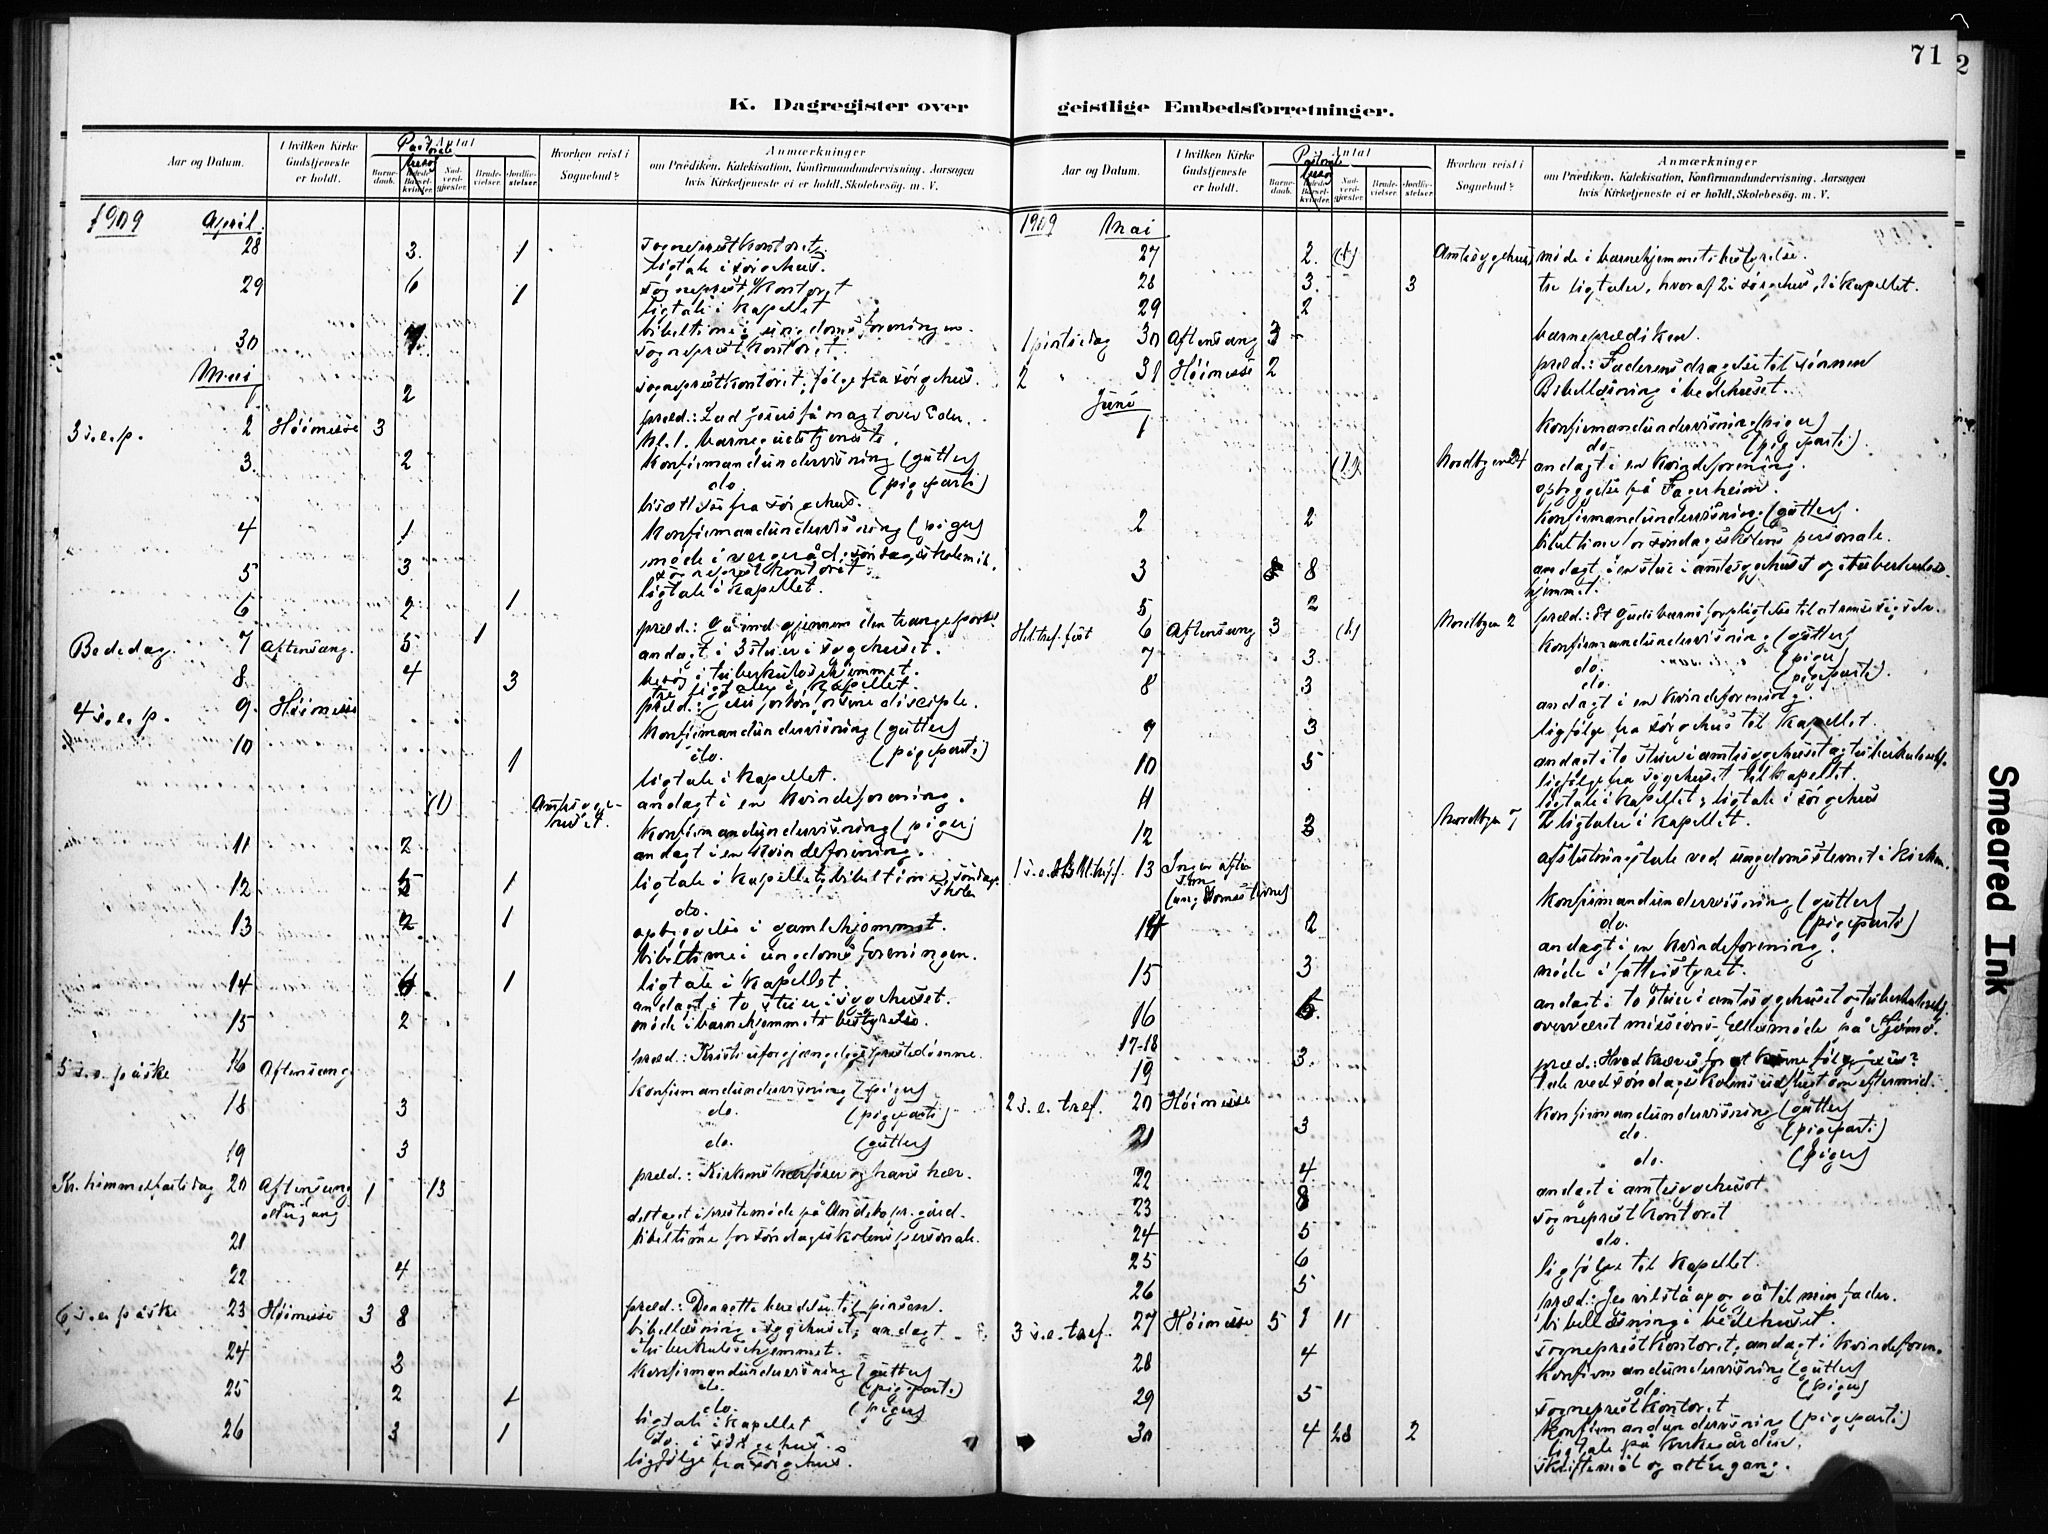 71
2
K. Dagregister over geistlige Embedsforretninger.
Aar og Datum.
I hvilken Kirke Gudstjeneste er holdt.
Antal
Pastorale
besøg
Barnedaab.
Nadverdgjester.
Brudevielser.
Jordfæstelser.
Hvorhen reist i Sognebud?
Anmærkninger
om Prædiken, Katekisation, Konfirmandundervisning, Aarsagen
hvis Kirketjeneste ei er holdt, Skolebesøg. m. V.
1909 April
28 3. 1 sogneprestkontoret
ligtale i sørgehus.
29 6 1 sogneprestkontoret
ligtale i kapellet
bibeltime i ungdomsforeningen.
30 sogneprestkontoret.
Mai
1 2 sogneprestkontoret; følge fra sørgehus.
3 s.e.p. 2 Høimesse 3 præd.: Lad Jesus få magt over Eder.
kl. 1. barnegudstjeneste.
3. 2 konfirmandundervisning (gutter)
do (pigeparti)
fra sørgehus.
4 1 konfirmandundervisning (piger)
møde i
5 3 sogneprestkontoret.
6 2 1 ligtale i kapellet.
Bededag. 7 Aftensang. 5 1 præd.: Gå ind gjennem den trange port.
8 4 3 andagt i 3 stuer i sygehuset.
besøg i tuberkulosehjemmet.
tre ligtaler i kapellet.
4 s.e.p. 9. Høimesse præd.: Jesu for sine disciple.
10 1 konfirmandundervisning (gutter)
do. (pigeparti)
ligtale i kapellet.
(1) Amtssygehuset. andagt i en kvindeforening.
11 2 konfirmandundervisning (piger)
andagt i en kvindeforening.
12 1 ligtale i kapellet; bibeltime
13 2 1 do.
opbyggelse i gamlehjemmet.
bibeltime i ungdomsforeningen.
14 1 ligtale i kapellet.
15 2 andagt i to stuer i sygehuset.
møde i barnehjemmets bestyrelse.
5 s.e. påske 16 Aftensang præd.: Kristi uforgjængelige prestedømme.
18 3 konfirmandundervisning (piger)
do. (pigeparti)
19 3 do. (gutter)
Kr. himmelfartsdag 20 Aftensang altergang 1 13 præd.: Kirkens hærfører og hans hær.
21 deltaget i prestemøde på Andebo pr.gård.
22 4 bibeltime for søndagsskolens personale.
6 s.e. påske 23 Høimesse 3 8 præd.: Den rette beredelse til pinsen.
bibellæsning i sygehuset; andagt
24 3 i tuberkulosehjemmet.
25 2 1 konfirmandundervisning (gutter)
do. (pigeparti)
do. (piger)
26 3 1 ligtale i kapellet
do. i sørgehus.
ligfølge fra sørgehus.
1909 Mai
27 2. (1) Amtssygehuset møde i barnehjemmets bestyrelse.
28 3. 3 tre ligtaler, hvoraf 2 i sørgehus, 1 i kapellet.
29 2
1 pintsedag 30 Aftensang 3 barneprædiken.
2 " 31 Høimesse 2 præd.: Faderens dragelse til sønnen
Bibellæsning i bedehuset.
Juni
1 konfirmandundervisning (piger)
do. (pigeparti).
Nordbyen andagt i en kvindeforening.
opbyggelse på Fagerheim.
2 2 konfirmandundervisning (gutter)
bibeltime for søndagsskolens personale.
3 8 andagt i en stue i amtssygehuset og i tuberkulosehjemmet.
5 2
Hel. tref. fest 6 Aftensang 3 (1) Nordbyen 2 præd.: Et Guds barns forpligtelse til at
7 3 konfirmandundervisning (gutter)
do. (piger)
8 3 do. (pigeparti).
andagt i en kvindeforening.
9 3 ligfølge fra sørgehus til kapellet.
10 5 andagt i to stuer i amtssygehuset og tuberkulosehj.
ligfølge fra sygehuset til kapellet.
11 ligtale i kapellet; ligtale i sørgehus
12 3 Nordbyen 7 2 ligtaler i kapellet.
13 Ingen afslutningstale ved ungdomsstevnet i kirken.
14 2 konfirmandundervisning (gutter)
do. (pigeparti)
andagt i en kvindeforening.
15 3 møde i fattigstyret.
16 andagt i to stuer i amtssygehuset og tuberkulosehj.
17-18 overværet missions-fællesmøde på Tjømø.
19 3.
2 s.e. tref. 20 Høimesse præd.: Hvad kræves for at kunne følge Jesus?
Tale ved søndagsskolens udflugt om eftermid.
21 3 konfirmandundervisning (gutter)
do. (pigeparti)
do. (piger)
22 4
23 8 andagt i amtssygehuset
24 5 sogneprestkontoret
25 6 do.
26 5 ligfølge til kapellet.
3 s.e. tref. 27 Høimesse 5 1 11 præd.: Jeg vil stå op og gå til min fader.
bibellæsning i bedehuset.
28 4 sogneprestkontoret; andagt i kvindeforen.
konfirmandundervisning (gutter)
do. (piger)
29 5 sogneprestkontoret
30 4 28 2 konfirmandundervisning (pigeparti)
ligtale på kirkegården.
skriftemål og altergang.
Smeared Ink